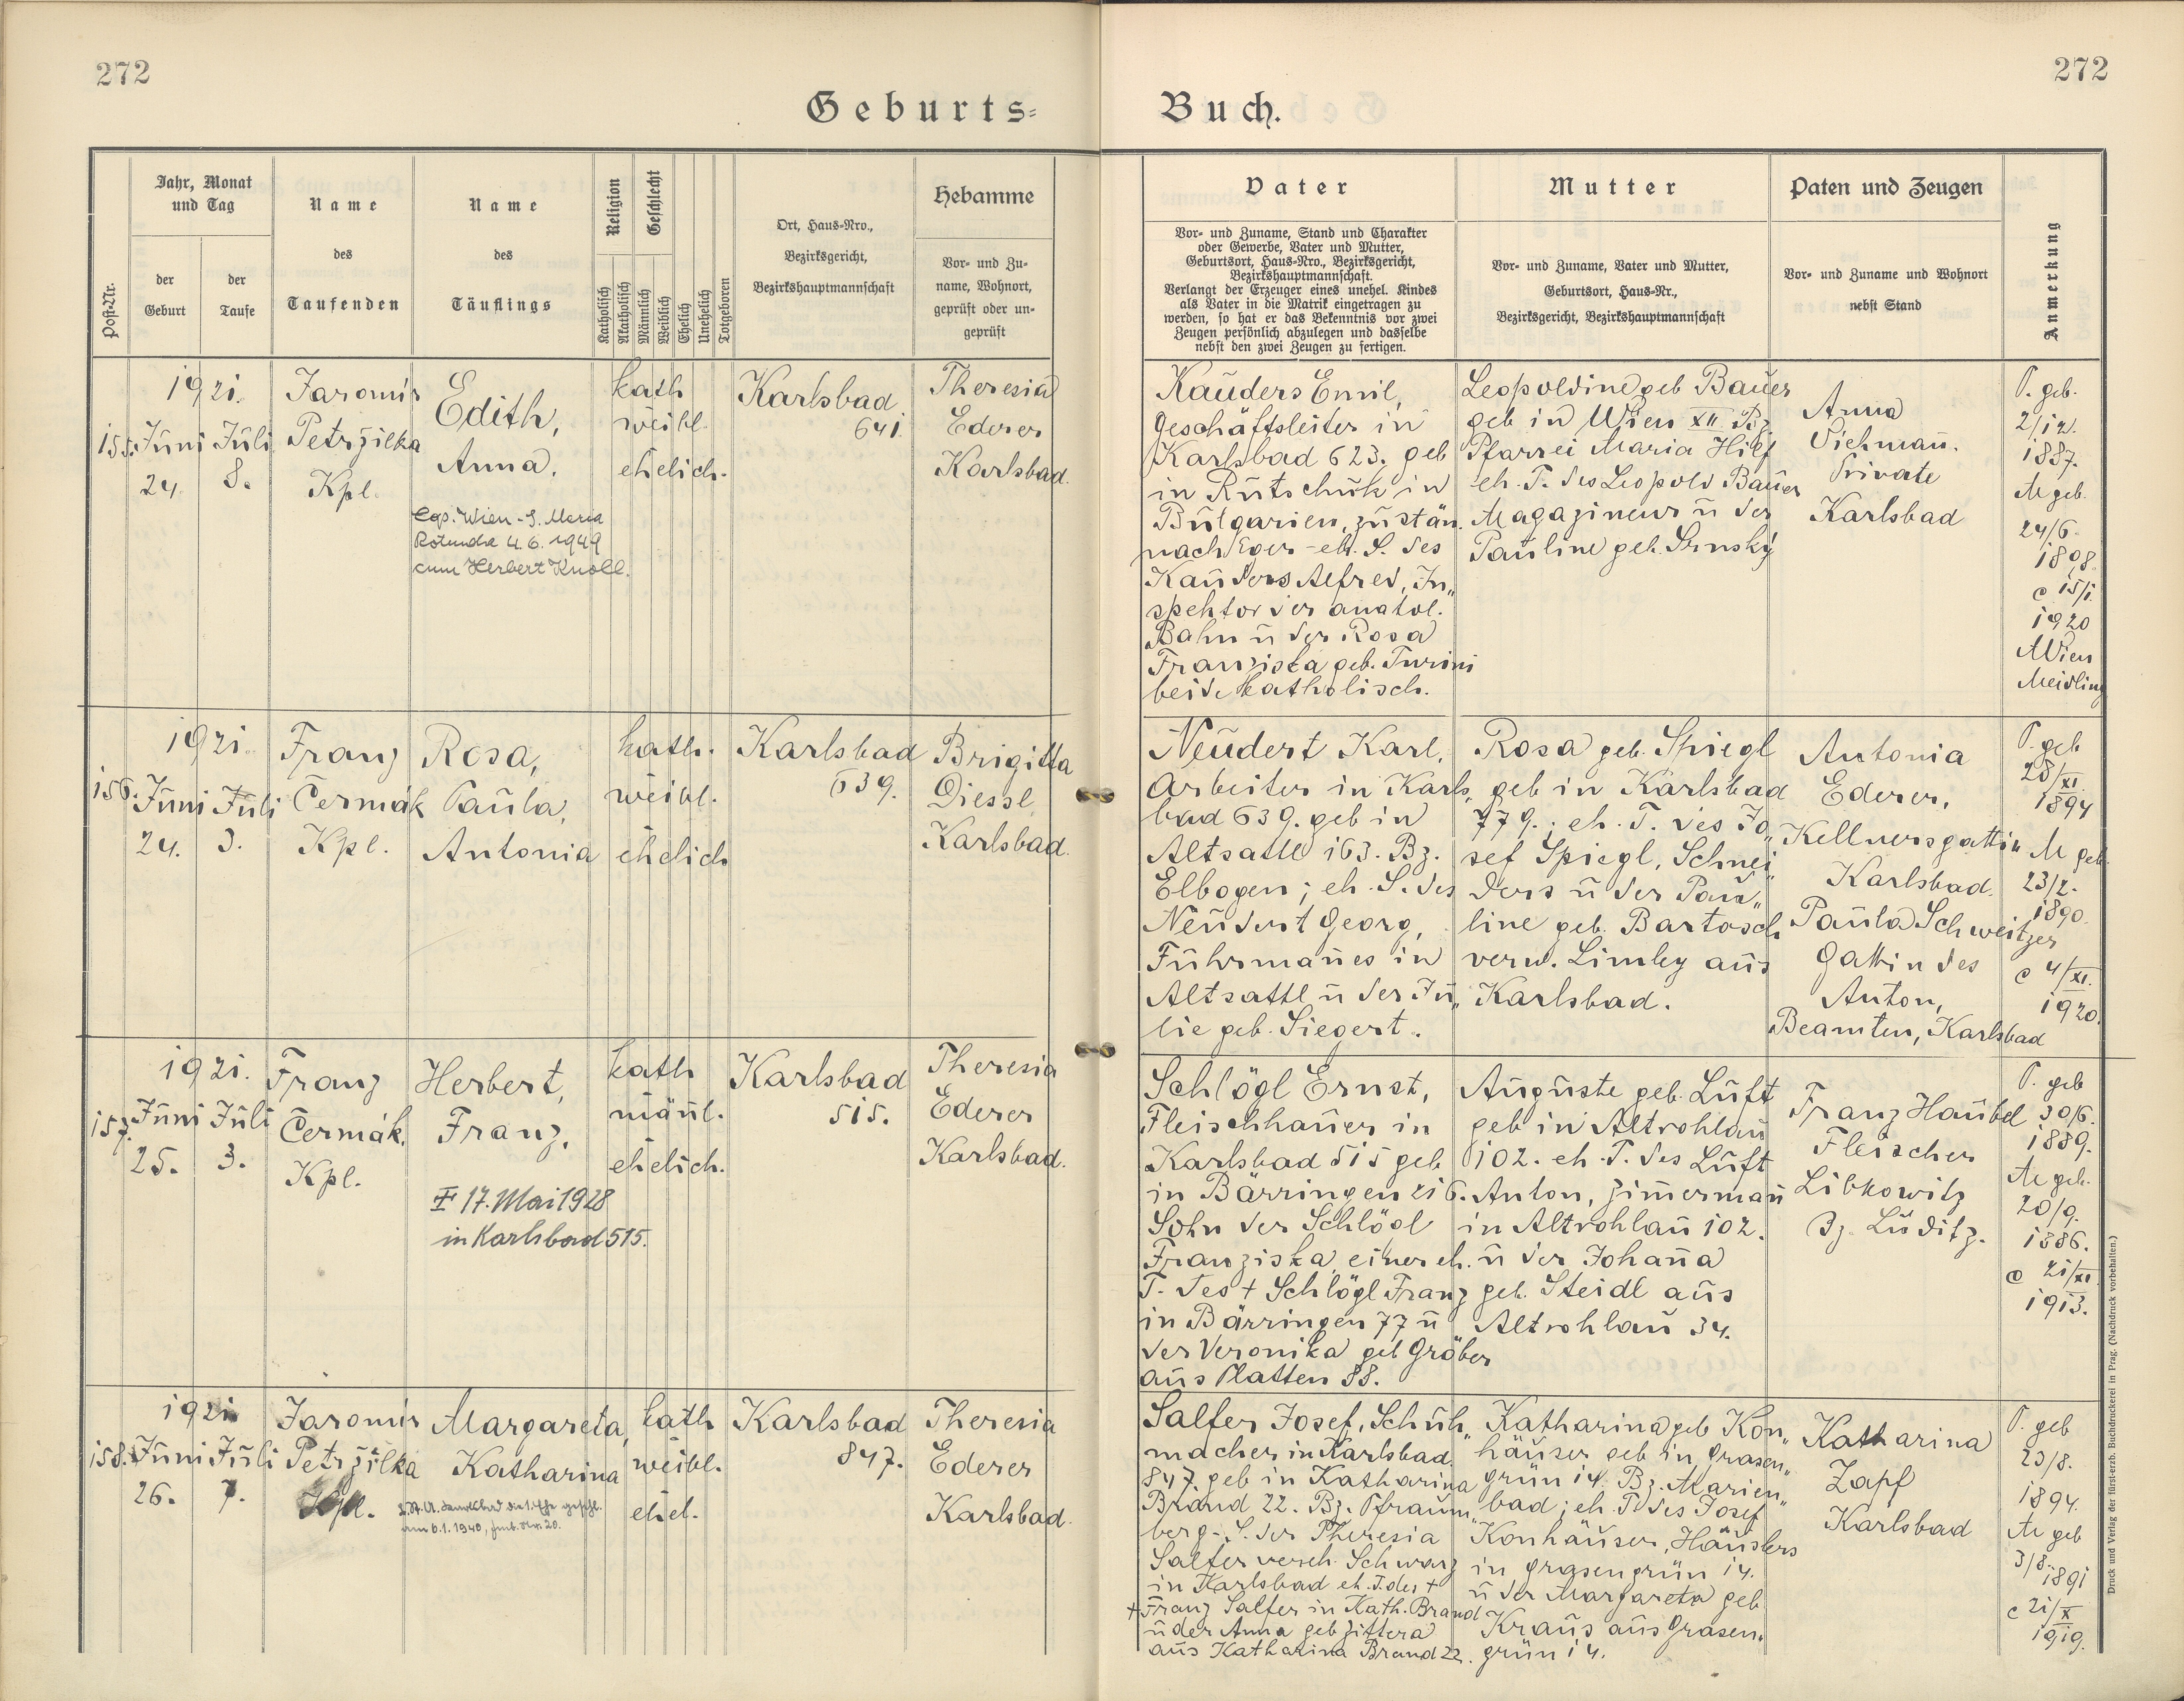 272
272
Geburts-
Buch.
Post-Nr.
Jahr, Monat
und Tag
der
Geburt
der
Taufe
Name
des
Taufenden
Name
des
Täuflings
Religion
Katholisch
Akatholisch
Geschlecht
Männlich
Weiblich
Ehelich
Unehelich
Totgeboren
Ort, Haus-Nro.,
Bezirksgericht,
Bezirkshauptmannschaft
Hebamme
Vor- und Zu-
name, Wohnort,
geprüft oder un-
geprüft
Vater
Vor- und Zuname, Stand und Charakter
oder Gewerbe, Vater und Mutter,
Geburtsort, Haus-Nro., Bezirksgericht,
Bezirkshauptmannschaft.
Verlangt der Erzeuger eines unehel. Kindes
als Vater in die Matrik eingetragen zu
werden, so hat er das Bekenntnis vor zwei
Zeugen persönlich abzulegen und dasselbe
nebst den zwei Zeugen zu fertigen.
Mutter
Vor- und Zuname, Vater und Mutter,
Geburtsort, Haus-Nr.,
Bezirksgericht, Bezirkshauptmannschaft
Paten und Zeugen
Vor- und Zuname und Wohnort
nebst Stand
Anmerkung
155.
1921.
Juni
24
Juli
8.
Jaromir
Petržilka
Kpl.
Edith,
Anna.
Cop. Wien - S. Maria
Rotunda 4.6. 1949
cum Herbert Knoll.
kath
weibl.
ehelich.
Karlsbad
641
Theresia
Ederer
Karlsbad.
Kauders Emil,
Geschäftsleiter in
Karlsbad 623. geb
in Rutschuk in
Bulgarien, zustän.
nach Eger - eh. S. des
Kauders Alfred, In„
spektor der anatol.
Bahn u der Rosa
Franziska geb. Turini
beide katholisch.
Leopoldine geb Bauer
geb in Wien XII Bz
Pfarrei Maria Hilf
eh. T. des Leopold Bauer
Magazineur u der
Pauline geb. Srnský
Anna
Viehmañ.
Private
Karlsbad
V. geb.
2/12.
1887.
M geb.
24/6.
1898.
c 15/1.
1920
Wien
Meidling
156.
1921.
Juni
24.
Juli
3.
Franz
Čermák
Kpl.
Rosa,
Paula,
Antonia
kath.
weibl.
ehelich
Karlsbad
639.
Brigitta
Diessl
Karlsbad.
Neudert Karl,
Arbeiter in Karls„
bad 639. geb in
Altsattl 163. Bz.
Elbogen; eh. S. des
Neudert Georg,
Fuhrmañes in
Altsattl u der Ju„
lie geb. Siegert.
Rosa geb. Spiegl
geb in Karlsbad
779.; eh. T. des Jo„
sef Spiegl, Schnei„
ders u der Pau„
line geb. Bartosch
verw. Limley aus
Karlsbad.
Antonia
Ederer,
Kellnersgattin
Karlsbad.
Paula Schweitzer
Gattin des
Anton,
Beamten, Karlsbad
V. geb
28/XI.
1894
M geb.
23/2.
1890.
c 4/XI.
1920.
157.
1921.
Juni
25.
Juli
3.
Franz
Čermák,
Kpl.
Herbert,
Franz.
17. Mai 1928
in Karlsbad 515.
kath
mäñl.
ehelich.
Karlsbad
515.
Theresia
Ederer
Karlsbad.
Schlögl Ernst,
Fleischhauer in
Karlsbad 515 geb
in Bärringen 216.
Sohn der Schlögl
Franziska, einer eh.
T. des + Schlögl Franz
in Bärringen 77 u
der Veronika geb Gröber
aus Platten 88.
Auguste geb. Luft
geb in Altrohlau
102. eh. T. des Luft
Anton, Zim̄ermañ
in Altrohlau 102.
u der Johaña
geb. Steidl aus
Altrohlau 34.
Franz Haubel
Fleischer
Libkowitz
Bz. Luditz.
V. geb
30/6.
1889.
M geb.
20/9.
1886.
c 21/XI
1913.
158.
1921
Juni
26.
Juli
7.
Jaromir
Petržilka
Kpl.
Margareta,
Katharina
am 6.1.1940,
kath
weibl.
ehel.
Karlsbad
847.
Theresia
Ederer
Karlsbad.
Salfer Josef, Schuh„
macher in Karlsbad.
847. geb in Katharina
Brand 22. Bz. Pfraum„
berg - S. der Theresia
Salfer vereh. Schwarz
in Karlsbad eh. T. des +
+ Franz Salfer in Kath. Brand
u der Anna geb Zittera
aus Katharina Brand 22.
Katharina geb Kon„
häuser geb in Grasen„
grün 14. Bz. Marien„
bad; eh. T. des Josef
Konhäuser, Häuslers
in Grasengrün 14.
u der Margareta geb
Kraus aus Grasen„
grün 14.
Katharina
Zapf
Karlsbad
V. geb
23/8.
1894.
M geb
3/8.
1891
c 21/X
1919.
Druck und Verlag der fürst-erzb. Buchdruckerei in Prag. (Nachdruck vorbehalten.)